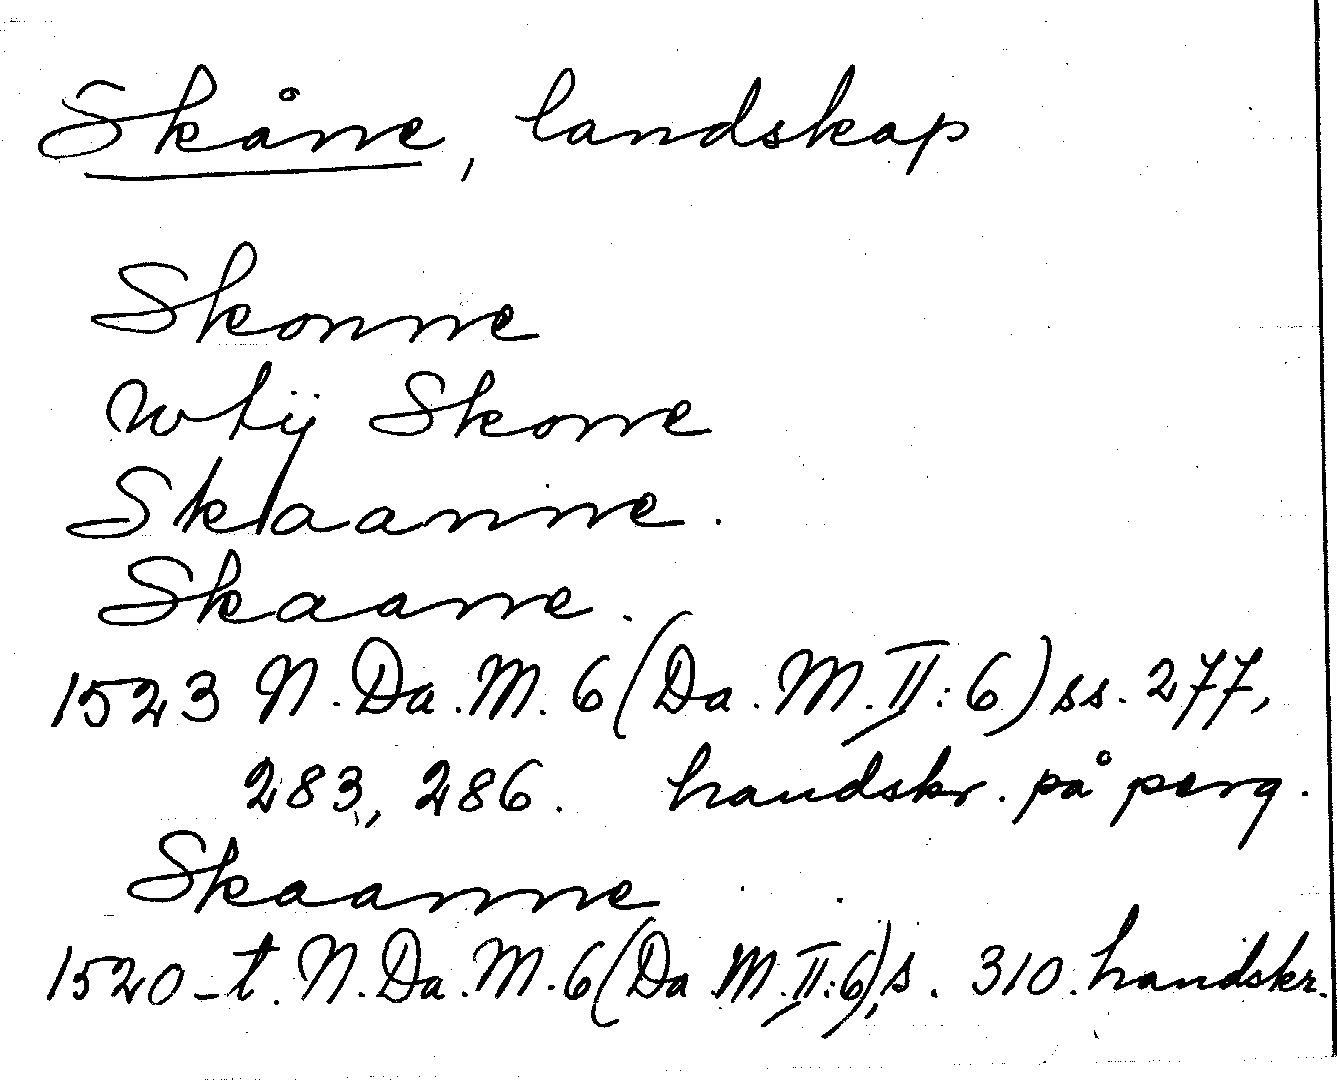 Skåne, landskap
Skonne
wtij Skone
Skaanne.
Skaane.
1523 N. Da. M. 6 (Da. M. II: 6) ss. 277,
283, 286. handskr. på perg.
Skaanne
1520-t. N. Da. M. 6 (Da M. II: 6), s. 310. handskr.